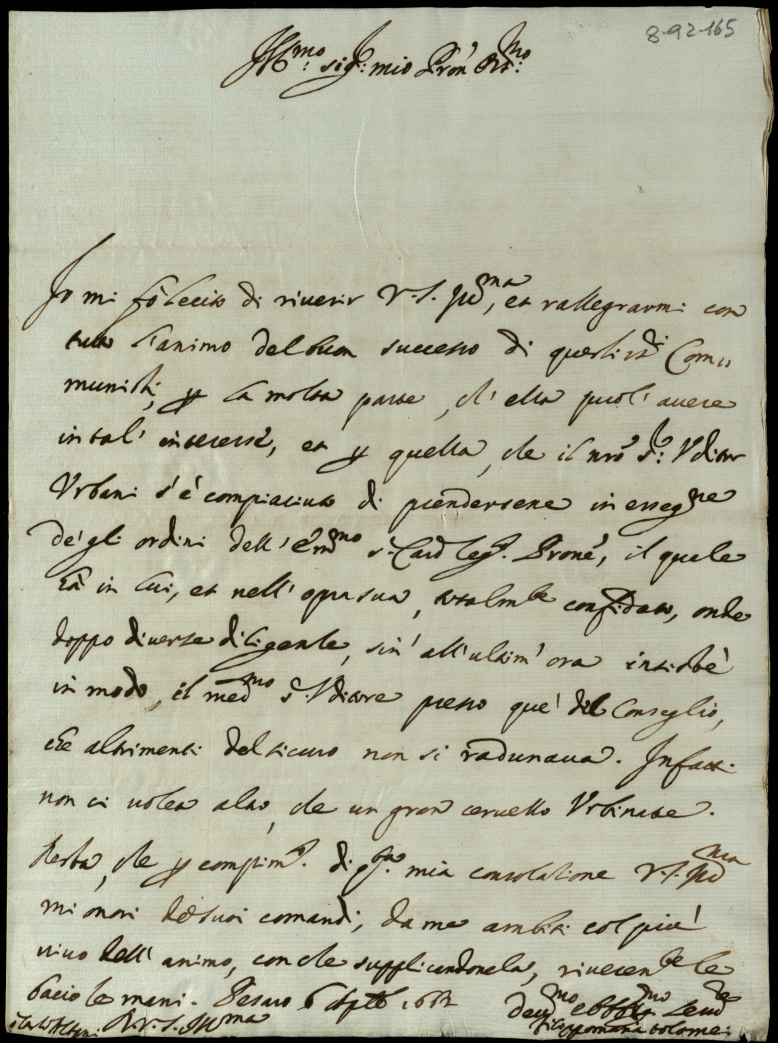 8-92-165
Ill.mo sig.r mio Pron Oss.mo
Io mi fò lecito di riverir V.S. Ill.ma, et rallegrarmi con
tutto l'animo del buon successo di questi Com,,
munisti, p la molta parte, ch' ella puol' avere
in tal' interesse, et p quella, che il nro s.r Uditor
Urbani s'è compiaciuto di prendersene in essegne
de gli ordini dell' E.mo s.r Card Leg.o Prone, il quale
hà in lui, et nell' opra sua, totalmte confidato, onde
doppo diverse diligenze, sin' all' ultim' ora
in modo, il med.mo s.r Uditore presso que' del Conseglio,
che altrimenti del sicuro non si radunava. Infatti
non ci volea altro, che un gran cervello Urbinate.
Resta, che p compim.o di q.ta mia consolatione V.S. Ill.ma
mi onori de suoi comandi, da me ambiti col più
vivo dell' animo, con che supplicandonela, riverente le
bacio le mani. Pesaro 6
D. V. S. Ill.ma
Dev.mo et Obblig.mo Serv.re